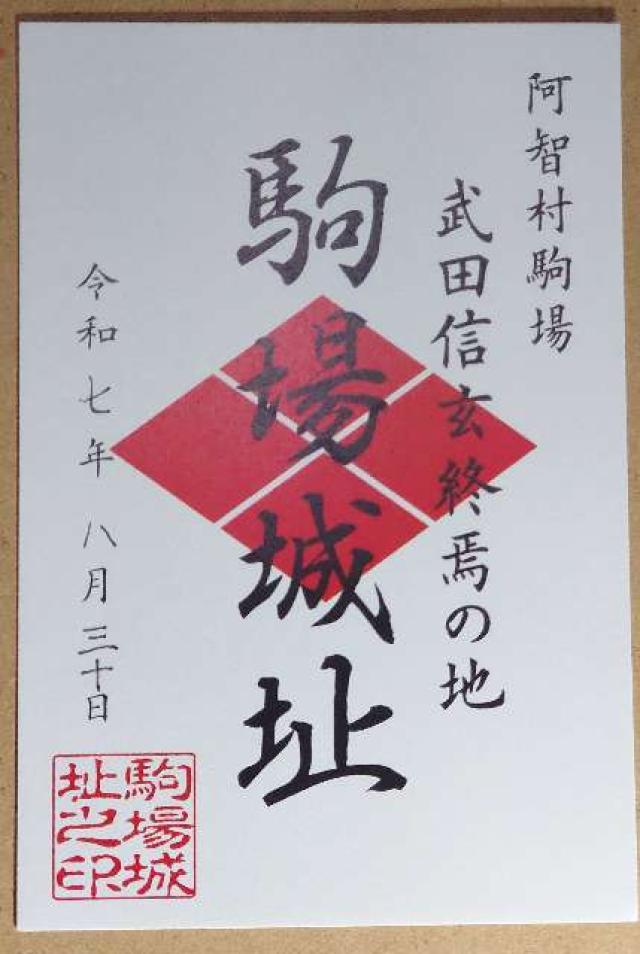 阿智村駒場
武田信玄終焉の地
駒場城址
令和七年 八月三十日
駒場城
址之印